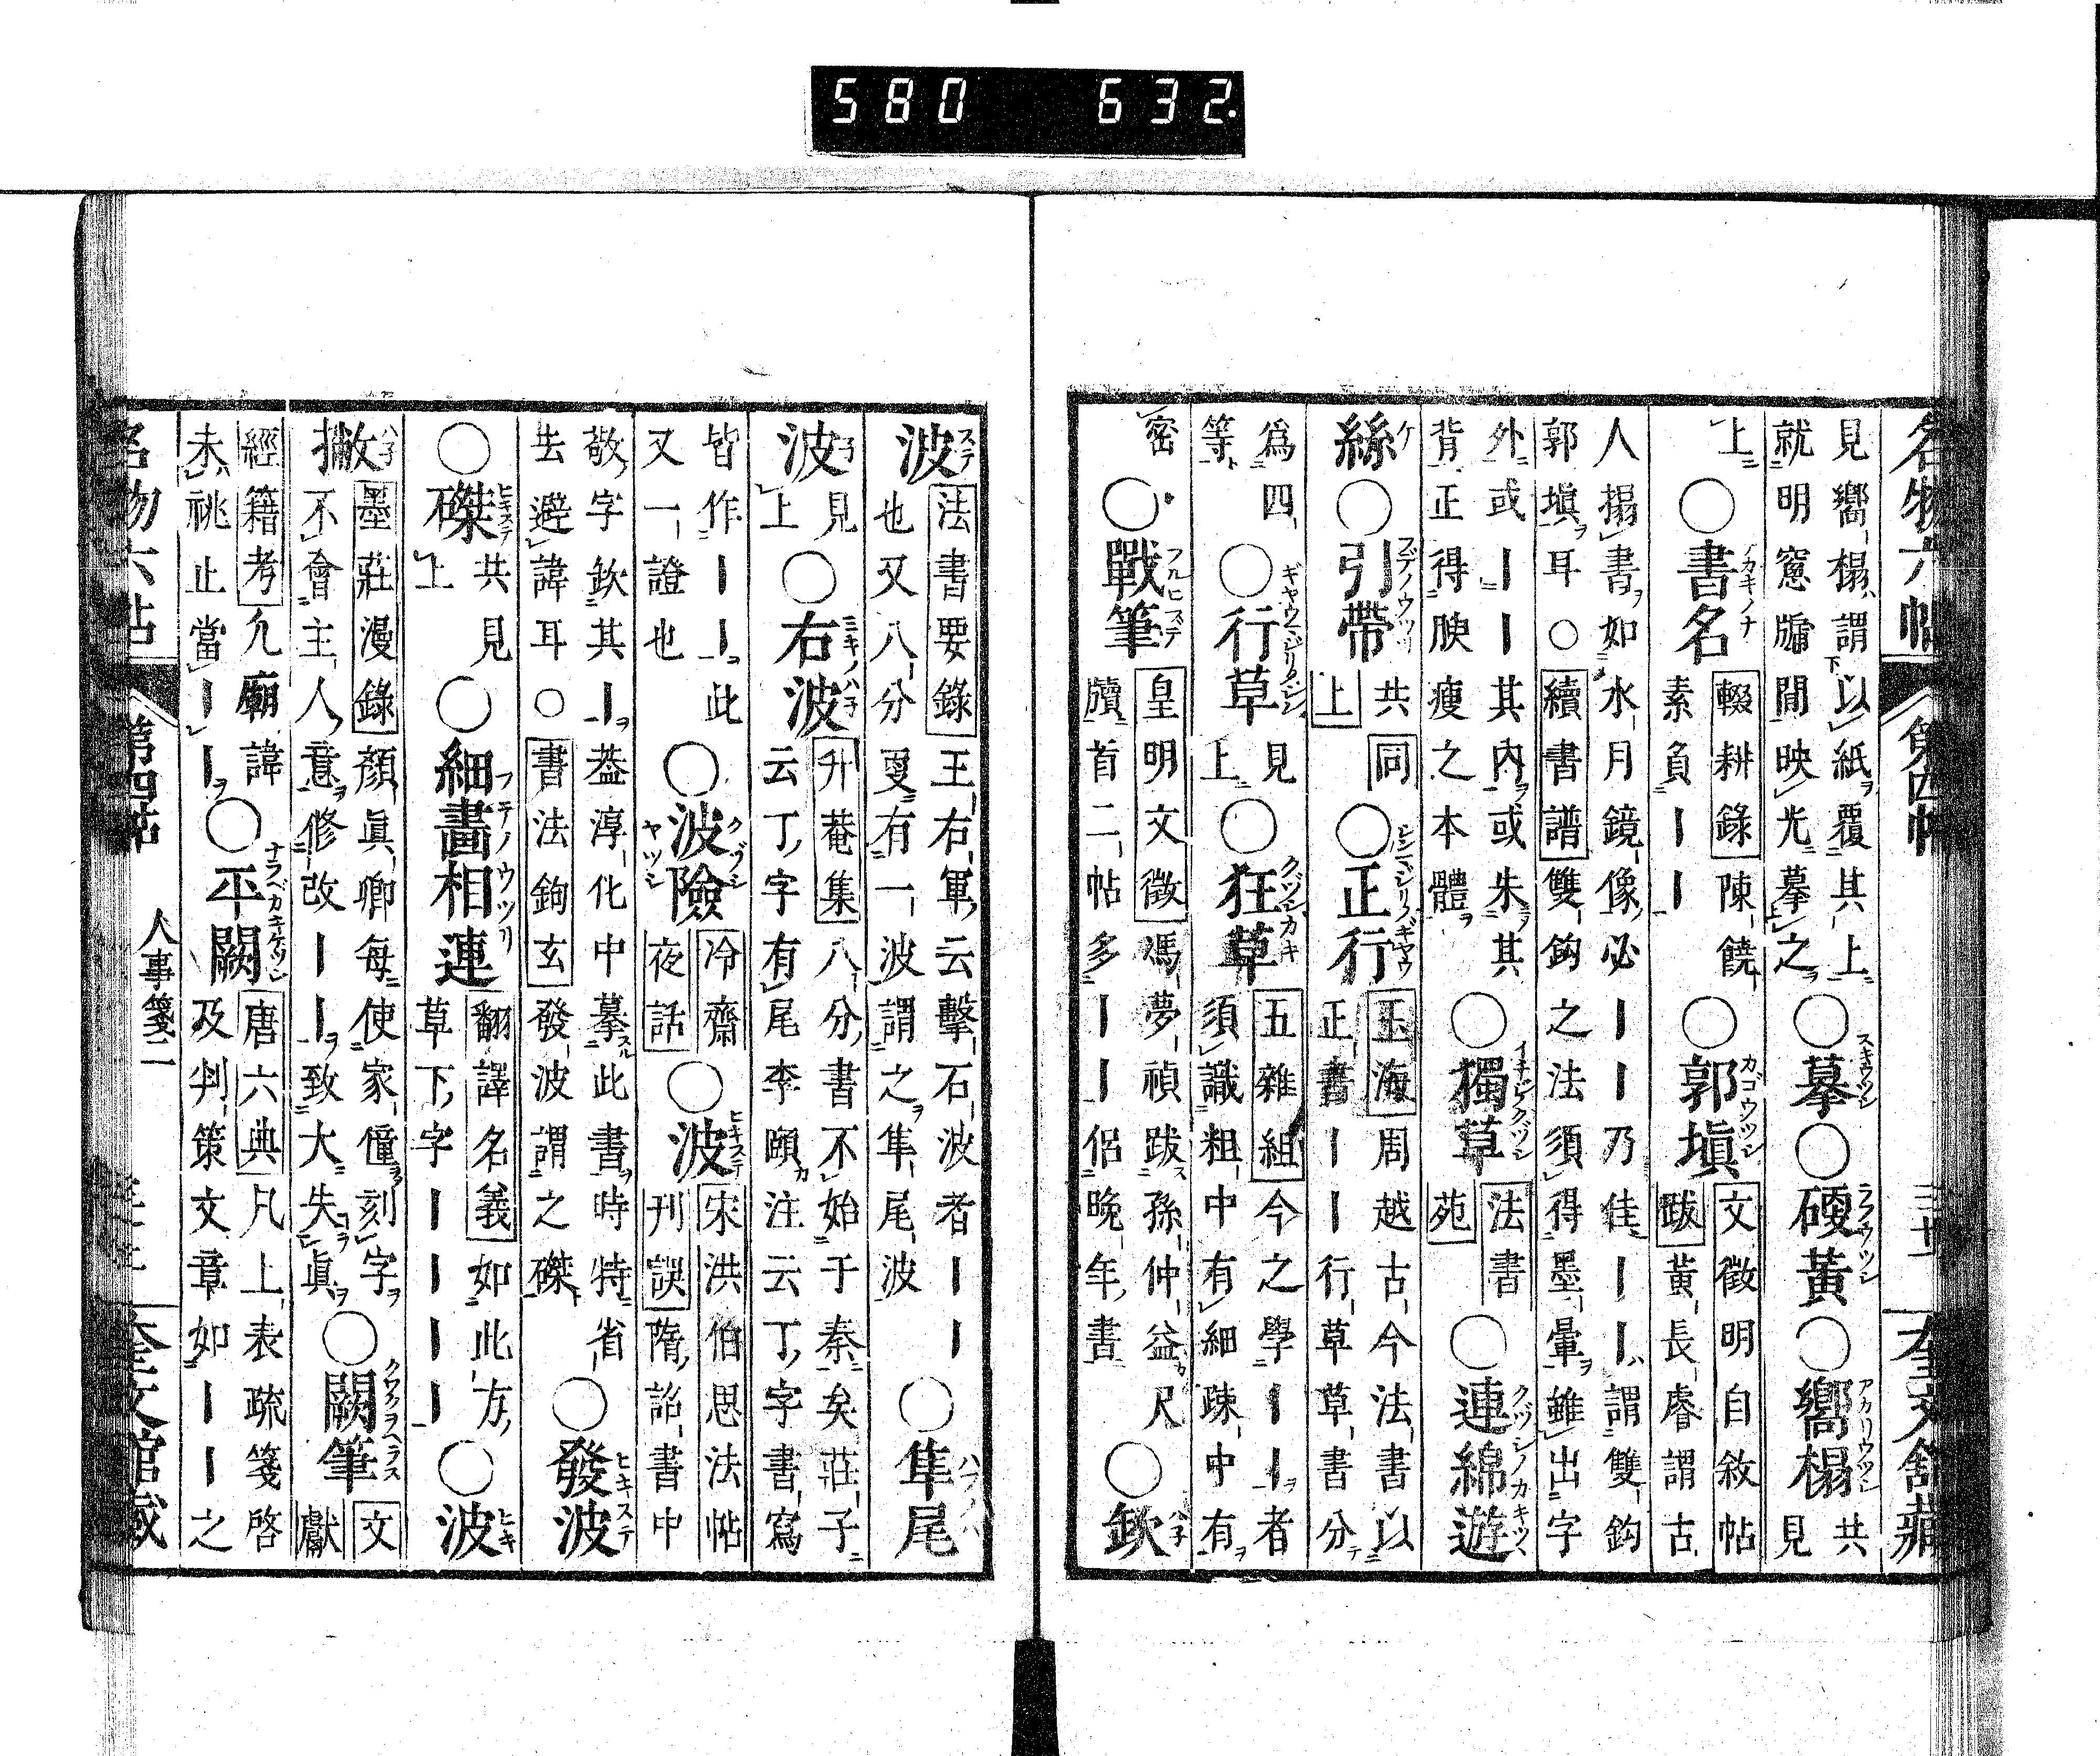 580 632.
名物六帖 第四帖 三十一 奎文館藏
見嚮榻謂以紙覆其上
就明窻牖間映光摹之
○摹 ○硬黃 ○嚮榻 共見
上 ○書名 輟耕錄 陳饒
素負｜｜
○郭塡 文徵明自敘帖
跋 黃長睿謂古
人搨書如水月鏡像必｜｜乃佳｜｜謂雙鈎
郭塡耳○續書譜 雙鈎之法須得墨暈雖出字
外或｜｜其內或朱其
背正得腴瘦之本體
○獨草 法書
苑
○連綿遊
絲 ○引帶 共同
上
○正行 玉海 周越古今法書以
正書｜｜行草草書分
爲四
等
○行草 見
上
○狂草 五雜組 今之學｜｜者
須識粗中有細疎中有
密 ○戰筆 皇明文徵 馮夢禎跋孫仲益尺
牘首二帖多｜｜侶晚年書
○欽
波 法書要錄 王右軍云擊石波者｜｜｜
也又八分更有一波謂之隼尾波
○隼尾
波 見
上
○右波 升菴集 八分書不始于秦矣莊子
云丁字有尾李頤注云丁字書寫
皆作｜｜此
又一證也
○波險 冷齋
夜話
○波 宋洪伯思法帖
刊誤 隋詔書中
敬字欽其｜葢淳化中摹此書時特省
去避諱耳○書法鉤玄 發波謂之磔
○發波
○磔 共見
上
○細畵相連 翻譯名義 如此方
草下字｜｜｜｜
○波
撇 墨莊漫錄 顏眞卿每使家僮刻字
不會主人意修改｜｜致大失眞
○闕筆 文
獻
經籍考 凢廟諱
未祧止當｜｜
○平闕 唐六典 凡上表疏箋啓
及判策文章如｜｜之
名物六帖 第四帖 人事箋二 奎文館藏